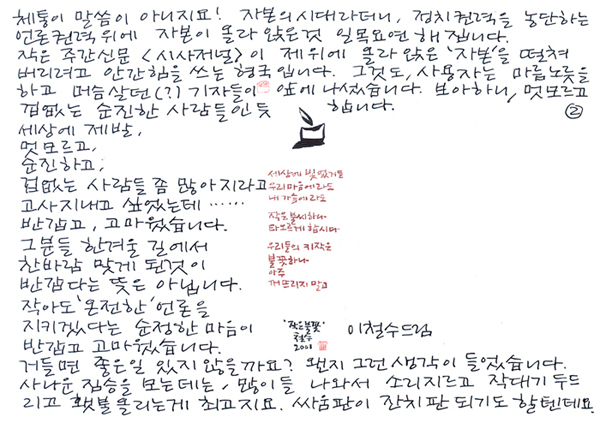 체통이 말씀이 아니지요! 자본의 시대라더니, 정치권력을 농단하는
언론권력위에 자본이 올라 앉은것 일목요연 해집니다.
작은 주간신문 <시사저널>이 제위에 올라 앉은 '자본'을 떨쳐
버리려고 안간힘을 쓰는 형국입니다. 그것도, 사용자는 마름노릇을
하고 머슴살던(?) 기자들이 앞에 나섰습니다. 보아하니, 멋모르고
겁없는 순진한 사람들인 듯 합니다. ②
세상에 제발,
멋모르고,
순진하고,
겁없는 사람들 좀 많아지라고
고사지내고 싶었는데 ……
반갑고, 고마웠습니다.
그분들 한겨울 길에서
찬바람 맞게 된것이
반갑다는 뜻은 아닙니다.
작아도 '온전한' 언론을
지키겠다는 순정한 마음이
반갑고 고마웠습니다.
거들면 좋은일 있지 않을까요? 왠지 그런 생각이 들었습니다.
사나운 짐승을 모는데는, 많이들 나와서 소리지르고 작대기 두드
리고 횃불 올리는게 최고지요. 싸움판이 잔치판 되기도 할텐데요.
세상에 빛 없거든
우리 마음에라도
내 가슴에라도
작은 불씨 하나
타오르게 합시다
우리들의 키작은
불꽃 하나
아주
꺼뜨리지 말고
'작은불꽃'
철수
2001
이철수드림